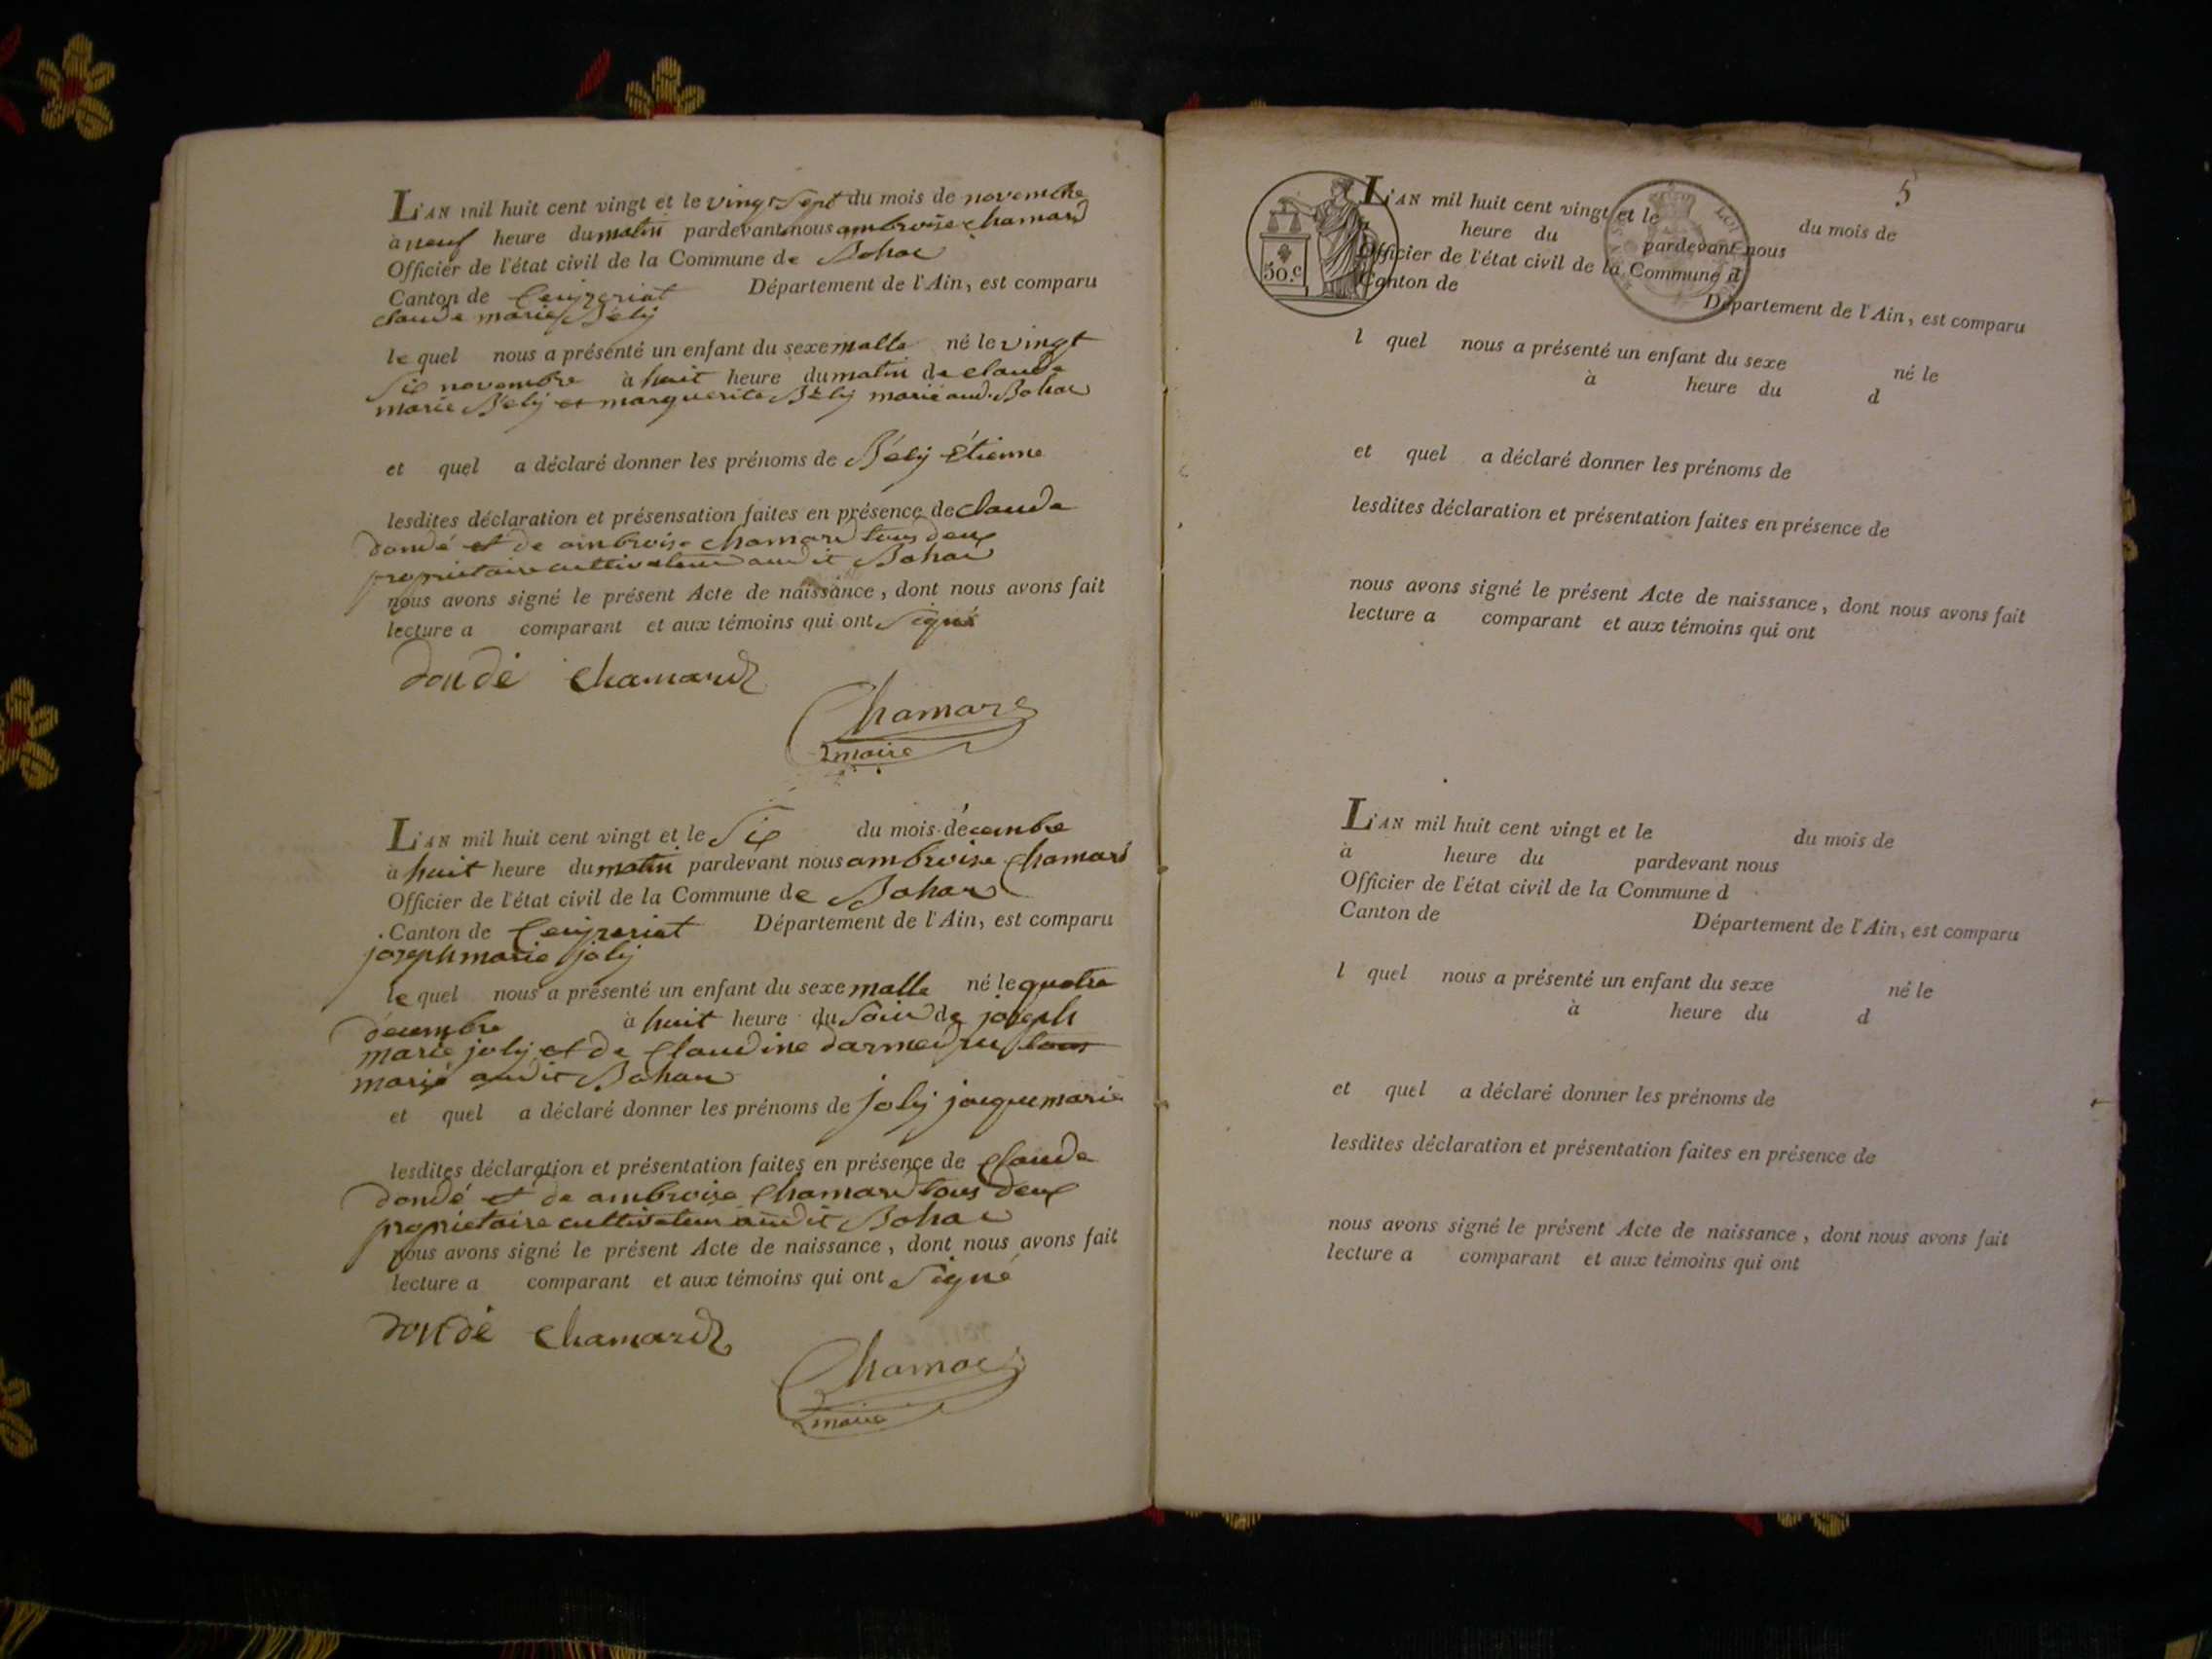 L'AN mil huit cent vingt et le vingt Sept du mois de novembre
à neuf heure du matin pardevant nous ambroise chamard
Officier de l'état civil de la Commune de Bohas
Canton de Ceyzeriat Département de l'Ain, est comparu
claude marie Bély
le quel nous a présenté un enfant du sexe malle né le vingt
Six novembre à huit heure du matin de claude
marie Bély et marguerite Bély marié aud. Bohas
et quel a déclaré donner les prénoms de Bély Étienne
lesdites déclaration et présensation faites en présence de claude
dondé et de ambroise chamard tous deux
proprietaire cultivateur audit Bohas
nous avons signé le présent Acte de naissance, dont nous avons fait
lecture a comparant et aux témoins qui ont Signé
dondé chamard
Chamard
maire
L'AN mil huit cent vingt et le Six du mois décembre
à huit heure du matin pardevant nous ambroise Chamard
Officier de l'état civil de la Commune de Bohas
Canton de Ceyzeriat Département de l'Ain, est comparu
joseph marie joly
le quel nous a présenté un enfant du sexe malle né le quatre
décembre à huit heure du Soir de joseph
marie joly et de Claudine
marié audit Bohas
et quel a déclaré donner les prénoms de joly jacque marie
lesdites déclaration et présentation faites en présence de Claude
dondé et de ambroise Chamard tous deux
proprietaire cultivateur audit Bohas
nous avons signé le présent Acte de naissance, dont nous avons fait
lecture a comparant et aux témoins qui ont Signé
dondé chamard
Chamard
maire
5
50.c
L'AN mil huit cent vingt et le du mois de
à heure du pardevant nous
Officier de l'état civil de la Commune d
Canton de Département de l'Ain, est comparu
l quel nous a présenté un enfant du sexe né le
à heure du d
et quel a déclaré donner les prénoms de
lesdites déclaration et présentation faites en présence de
nous avons signé le présent Acte de naissance, dont nous avons fait
lecture a comparant et aux témoins qui ont
L'AN mil huit cent vingt et le du mois de
à heure du pardevant nous
Officier de l'état civil de la Commune d
Canton de Département de l'Ain, est comparu
l quel nous a présenté un enfant du sexe né le
à heure du d
et quel a déclaré donner les prénoms de
lesdites déclaration et présentation faites en présence de
nous avons signé le présent Acte de naissance, dont nous avons fait
lecture a comparant et aux témoins qui ont